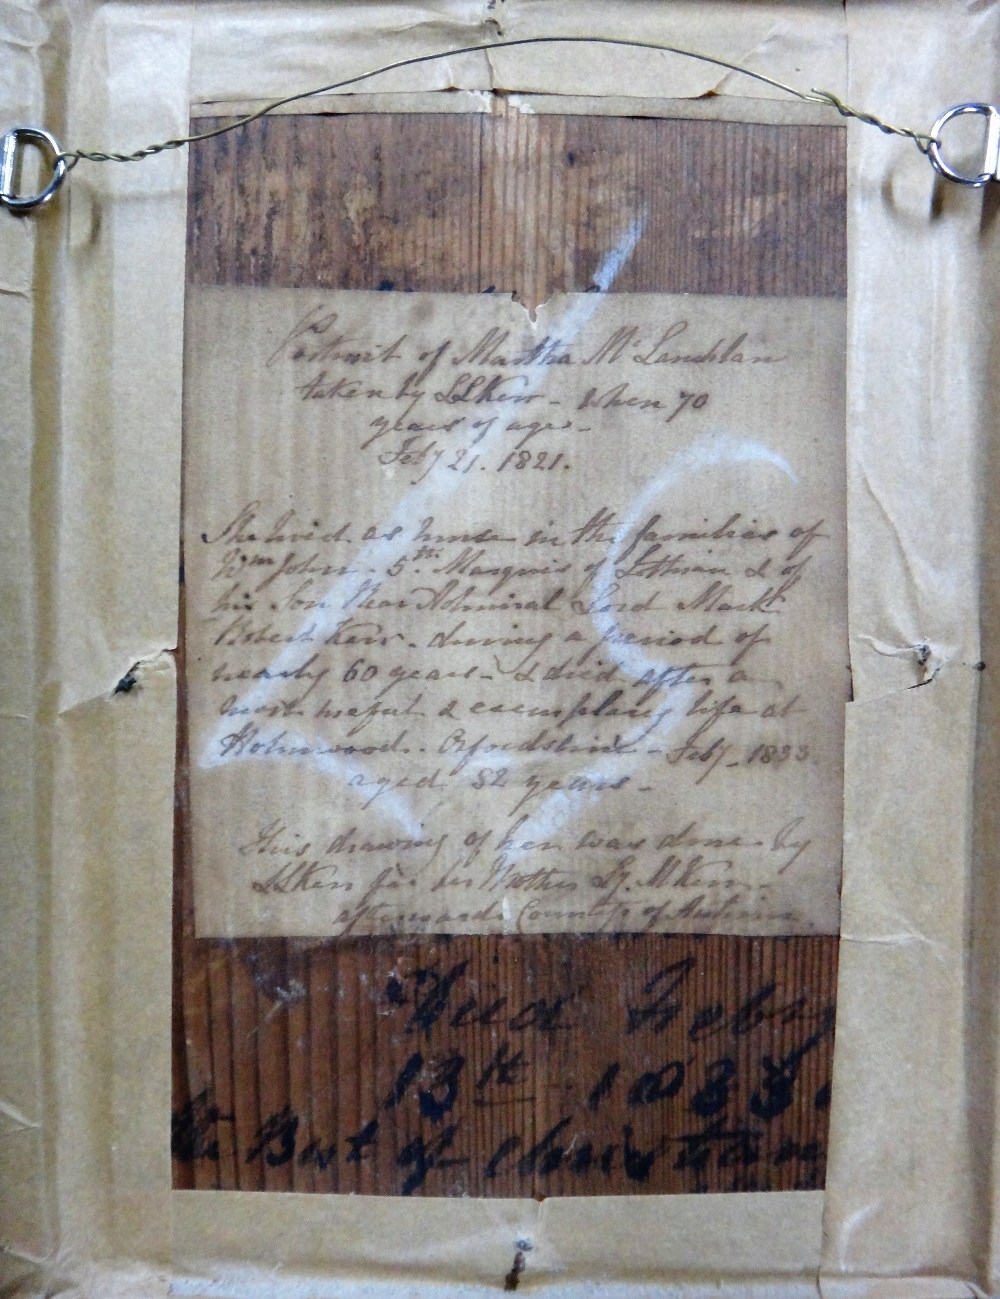 Portrait of Martha McLauchlan
taken by LLKerr - when 70
years of age -
Feby 21. 1821.
She lived as nurse in the families of
Wm John - 5th Marquis of Lothian & of
his Son Rear Admiral Lord Mark
Robert Kerr - during a period of
nearly 60 years - & died after a
most useful & exemplary life at
Holmwood. Oxfordshire - Feby. 1833
aged 82 years -
This drawing of her was done by
LLKerr for her Mother Ly. MKerr -
afterwards Countess of Antrim
Died Feby
13th - 1833.
the Best of christians